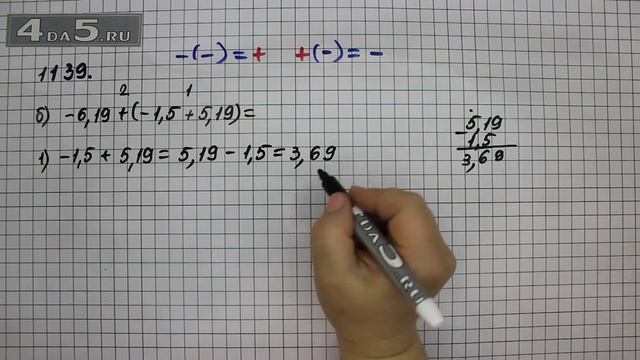 4DA5.RU
-(-)=+ +(-)=-
1139.
2 1
б) -6,19+(-1,5+5,19)=
1) -1,5+5,19=5,19-1,5=3,69
5,19
-
1,5
3,69
4DA5.RU